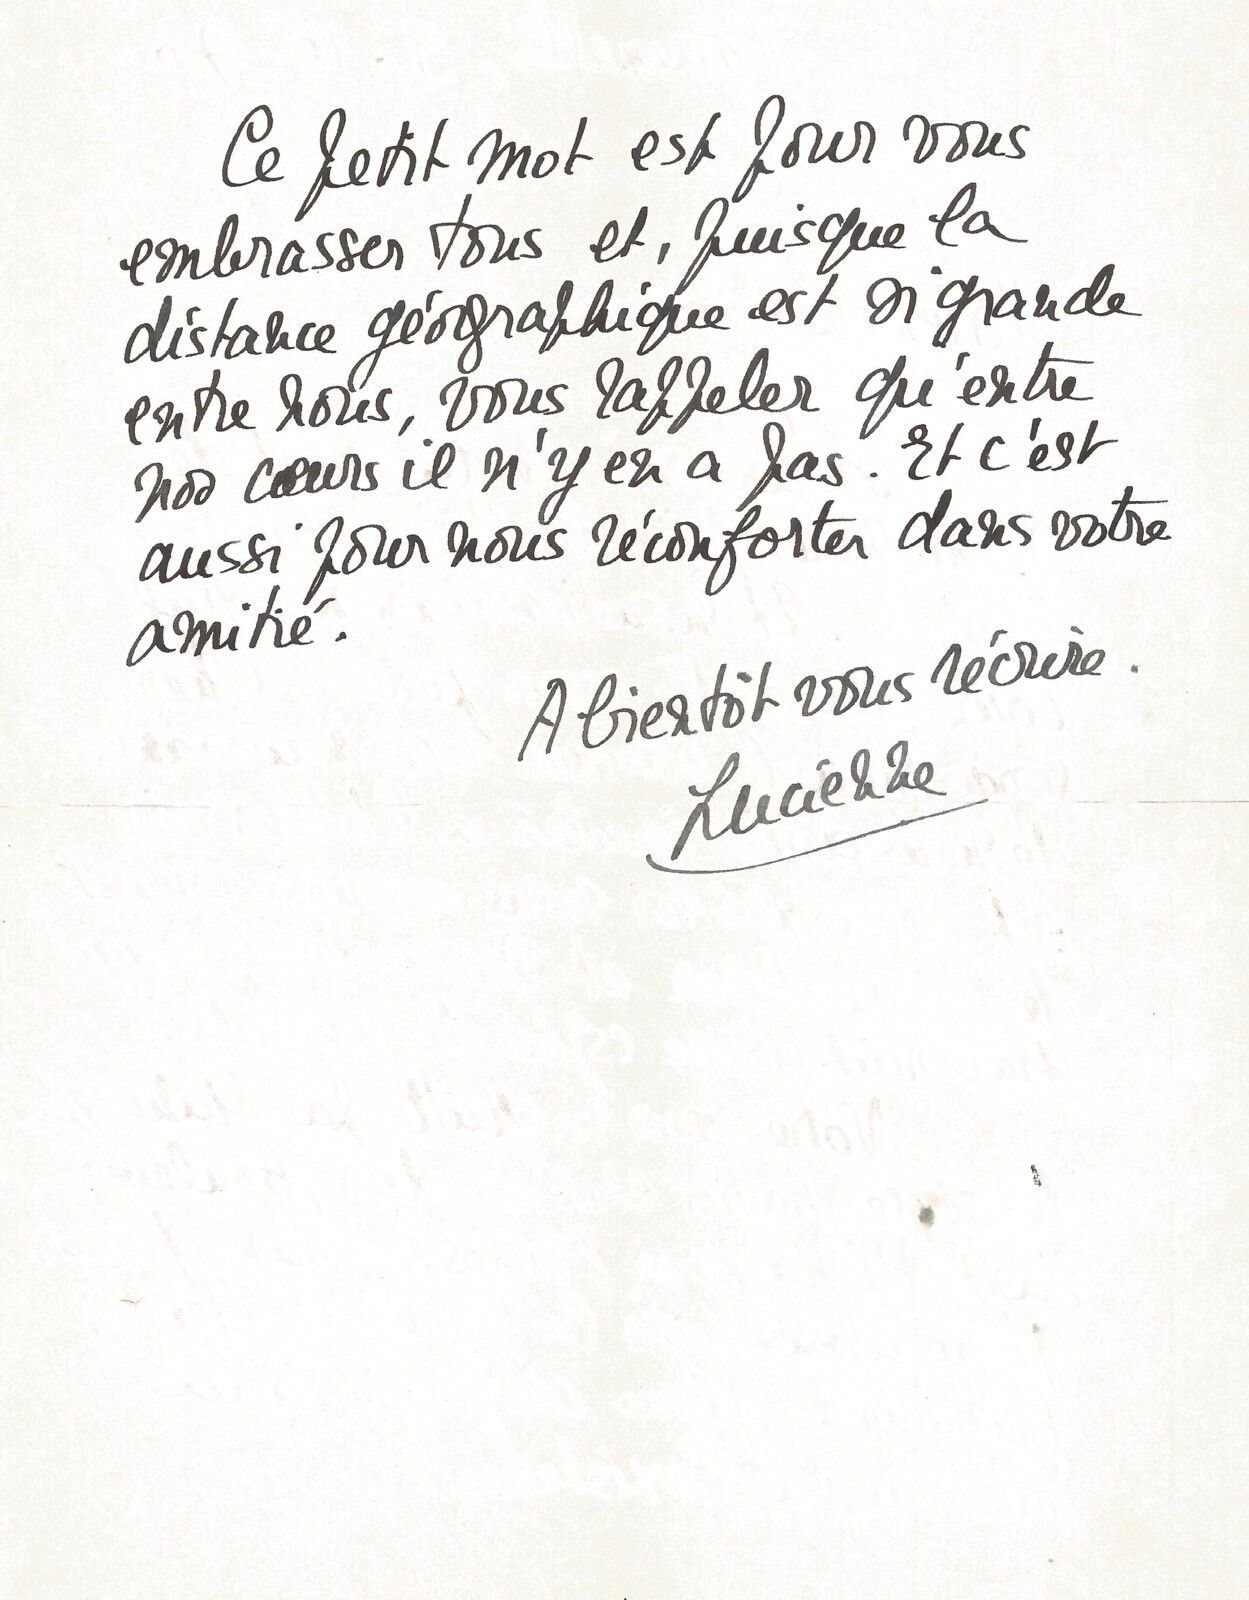 Ce petit mot est pour vous
embrasser tous et, puisque la
distance géographique est si grande
entre nous, vous rappeler qu'entre
nos cœurs il n'y en a pas. Et c'est
aussi pour nous réconforter dans votre
amitié.
A bientôt vous récrire.
Lucienne